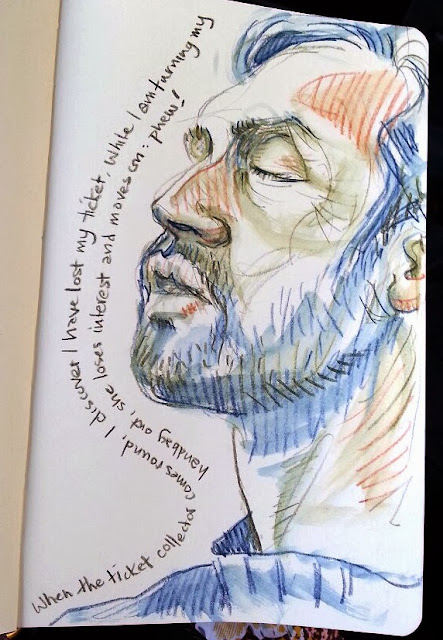 When the ticket collector comes round, I discover I have lost my ticket, While I am turning my
handbag out, she loses interest and moves on: phew!